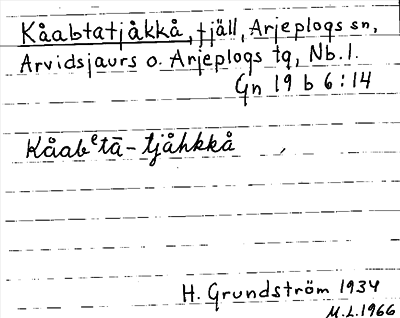 Kåabtatjåkkå, fjäll, Arjeplogs sn,
Arvidsjaurs o. Arjeplogs tg, Nb. l.
Gn 19 b 6:14
Kåabᵉtā-tjåhkkå
H. Grundström 1934
M.L.1966